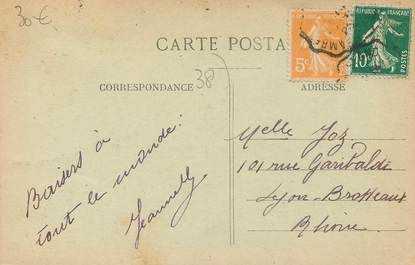 30€
CARTE POSTA
RÉPUBLIQUE FRANÇAISE
5c
10c
POSTES
CORRESPONDANCE
38
ADRESSE
Baisers à
tout le monde.
Melle Joz
101 rue Garibaldi
Lyon-Brotteaux
Rhône